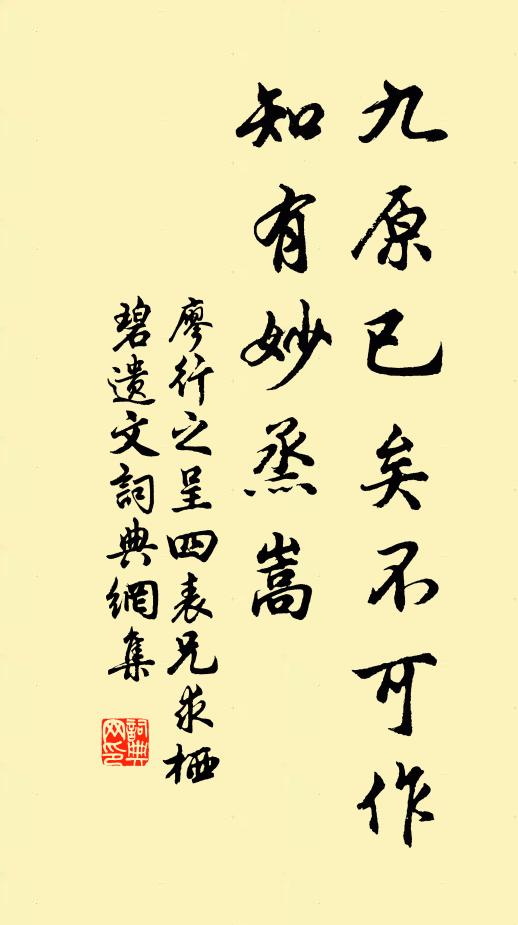 九原已矣不可作
知有妙烝嵩
廖行之呈四表兄求栖
碧遺文詞典網集
詞典
网印